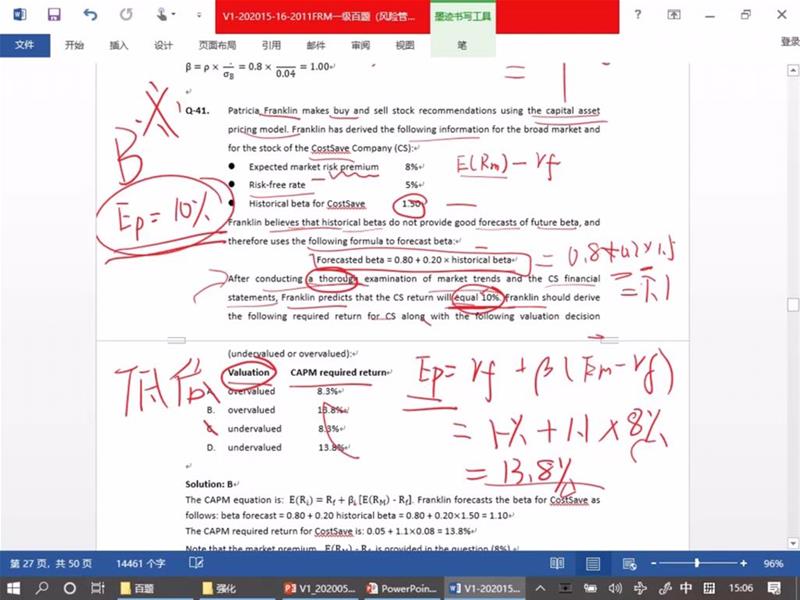 V1-202015-16-2011FRM一级百题（风险管...
墨迹书写工具
登录
文件
开始
插入
设计
页面布局
引用
邮件
审阅
视图
笔
β = ρ × σB = 0.8 × 0.04 = 1.00
=
B
Q-41. Patricia Franklin makes buy and sell stock recommendations using the capital asset
pricing model. Franklin has derived the following information for the broad market and
for the stock of the CostSave Company (CS):
Expected market risk premium 8%
E(Rm) - rf
Risk-free rate 5%
Historical beta for CostSave 1.50
Ep = 10%
Franklin believes that historical betas do not provide good forecasts of future beta, and
therefore uses the following formula to forecast beta:
Forecasted beta = 0.80 + 0.20 × historical beta
= 0.8+0.2×1.5
= 1.1
After conducting a thorough examination of market trends and the CS financial
statements, Franklin predicts that the CS return will equal 10%. Franklin should derive
the following required return for CS along with the following valuation decision
(undervalued or overvalued):
Valuation CAPM required return
overvalued 8.3%
B. overvalued 13.8%
C. undervalued 8.3%
D. undervalued 13.8%
Ep = rf + β(Rm - rf)
+ 1.1 × 8%
= 13.8%
Solution: B
The CAPM equation is: E(Ri) = Rf + βi [E(RM) - Rf]. Franklin forecasts the beta for CostSave as
follows: beta forecast = 0.80 + 0.20 historical beta = 0.80 + 0.20×1.50 = 1.10
The CAPM required return for CostSave is: 0.05 + 1.1×0.08 = 13.8%
Note that the market premium, E(RM) - Rf, is provided in the question (8%)
第 27 页，共 50 页
14461 个字
96%
百题
强化
V1_202005...
PowerPoin...
V1-202015...
中
15:06